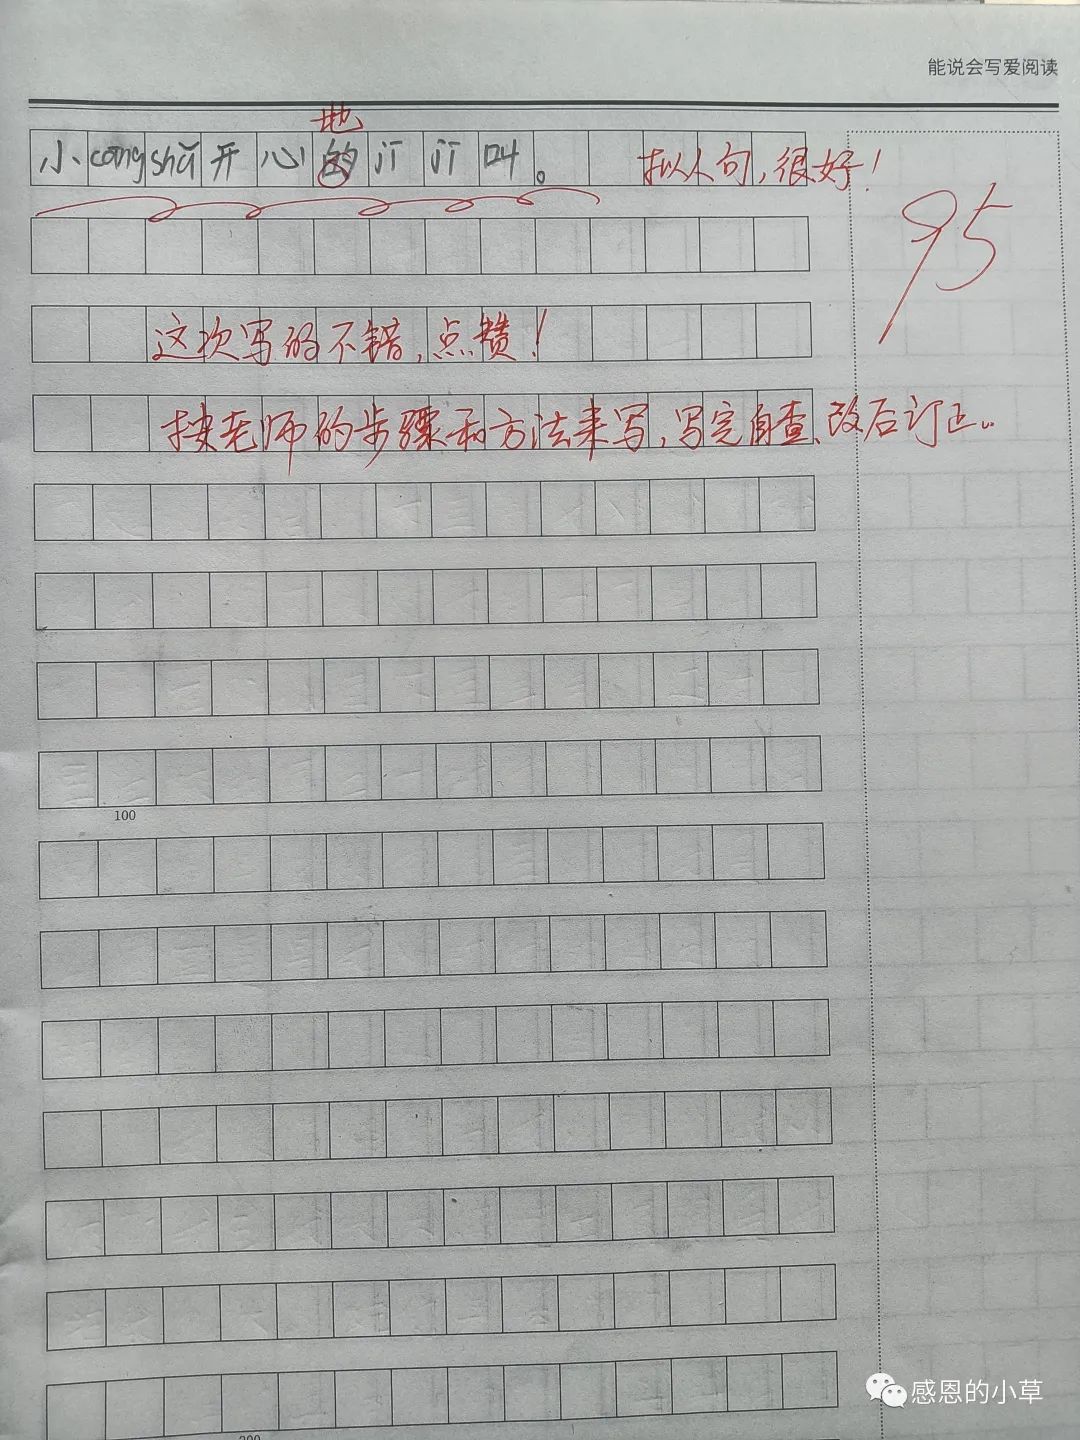 能说会写爱阅读
地
小cōngshǔ开心的jījī叫。 拟人句，很好！
95
这次写的不错，点赞！
按老师的步骤和方法来写，写完自查、改后订正。
100
200
感恩的小草